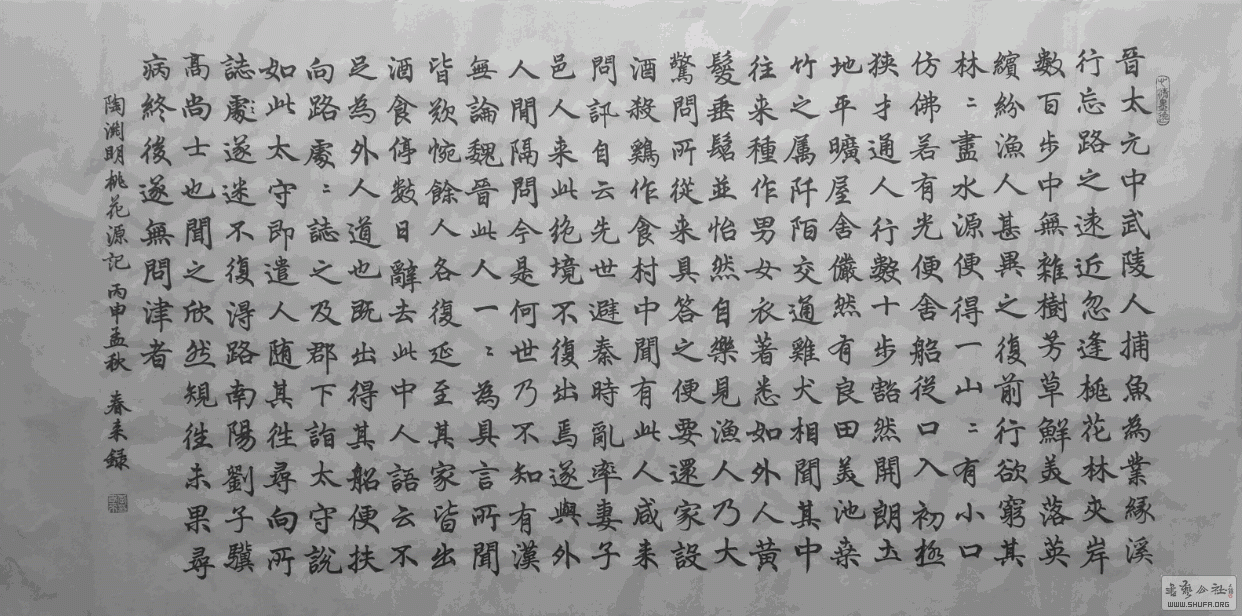 晉太元中武陵人捕魚為業緣溪
行忘路之遠近忽逢桃花林夾岸
數百步中無雜樹芳草鮮美落英
繽紛漁人甚異之復前行欲窮其
林〻盡水源便得一山〻有小口
仿佛若有光便舍船從口入初極
狹才通人行數十步豁然開朗土
地平曠屋舍儼然有良田美池桑
竹之属阡陌交通雞犬相聞其中
往来種作男女衣著悉如外人黃
髮垂髫並怡然自樂見漁人乃大
驚問所從来具答之便要還家設
酒殺鷄作食村中聞有此人咸来
問訊自云先世避秦時亂率妻子
邑人来此絶境不復出焉遂與外
人間隔問今是何世乃不知有漢
無論魏晉此人一〻為具言所聞
皆歎惋餘人各復延至其家皆出
酒食停數日辭去此中人語云不
足為外人道也既出得其船便扶
向路處〻誌之及郡下詣太守說
如此太守即遣人随其往尋向所
誌處遂迷不復得路南陽劉子驥
高尚士也聞之欣然規往未果尋
病終後遂無問津者
陶淵明桃花源記 丙申孟秋 春来錄
WWW.SHUFA.ORG